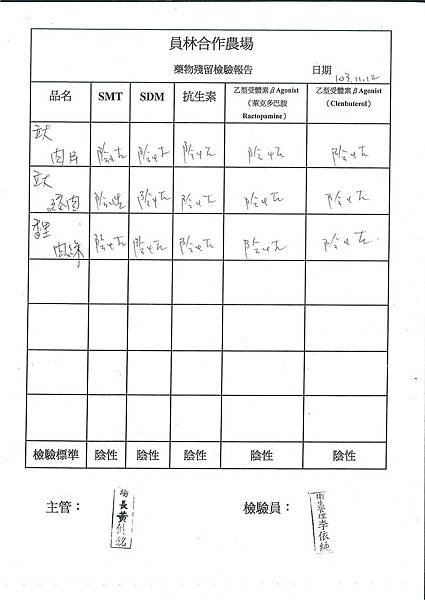 員林合作農場
藥物殘留檢驗報告 日期 103.11.12
品名 SMT SDM 抗生素 乙型受體素βAgonist（萊克多巴胺 Ractopamine） 乙型受體素βAgonist（Clenbuterol）
肉片 陰性 陰性 陰性 陰性 陰性
肉 陰性 陰性 陰性 陰性 陰性
肉絲 陰性 陰性 陰性 陰性 陰性
檢驗標準 陰性 陰性 陰性 陰性 陰性
主管： 場長黃 檢驗員： 衛生管理李依純